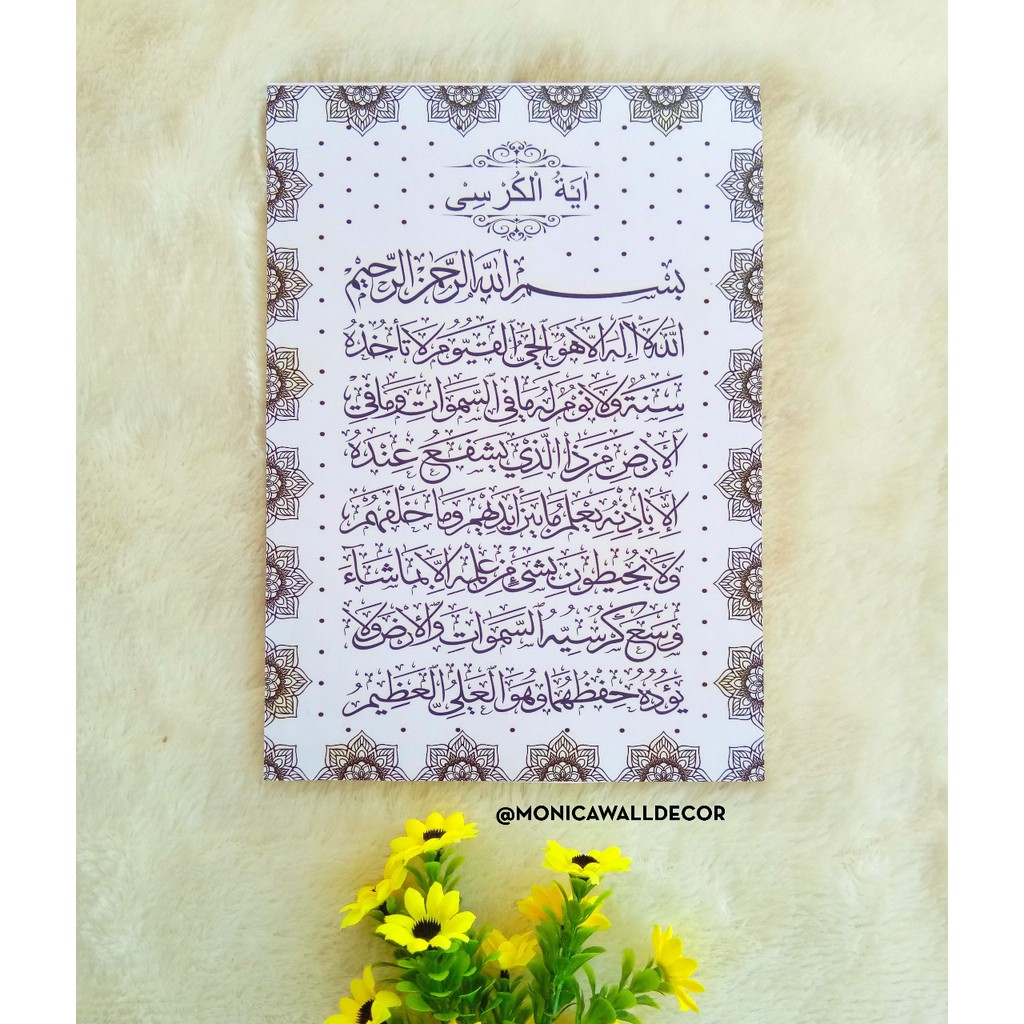 اٰيَةُ الْكُرْسِى
بِسْمِ اللّٰهِ الرَّحْمٰنِ الرَّحِيْمِ
اَللّٰهُ لَا اِلٰهَ اِلَّا هُوَ الْحَيُّ الْقَيُّوْمُ لَا تَأْخُذُهُ
سِنَةٌ وَلَا نَوْمٌ لَهُ مَا فِي السَّمٰوَاتِ وَمَا فِي
الْاَرْضِ مَنْ ذَا الَّذِيْ يَشْفَعُ عِنْدَهُ
اِلَّا بِاِذْنِهِ يَعْلَمُ مَا بَيْنَ اَيْدِيْهِمْ وَمَا خَلْفَهُمْ
وَلَا يُحِيْطُوْنَ بِشَيْءٍ مِنْ عِلْمِهِ اِلَّا بِمَا شَاءَ
وَسِعَ كُرْسِيُّهُ السَّمٰوَاتِ وَالْاَرْضَ وَلَا
يَؤُدُهُ حِفْظُهُمَا وَهُوَ الْعَلِيُّ الْعَظِيْمُ
@MONICAWALLDECOR